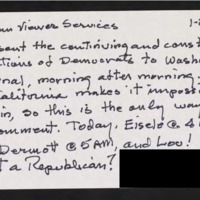 an Viewer Services 1-2
sent the continuing and const
tions of Democrats to Wash
nal, morning after morning.
California makes it imposs
in, so this is the only wa
omment. Today, Eisele @ 4
Dermott @ 5 AM, and Loo!
t a Republican?